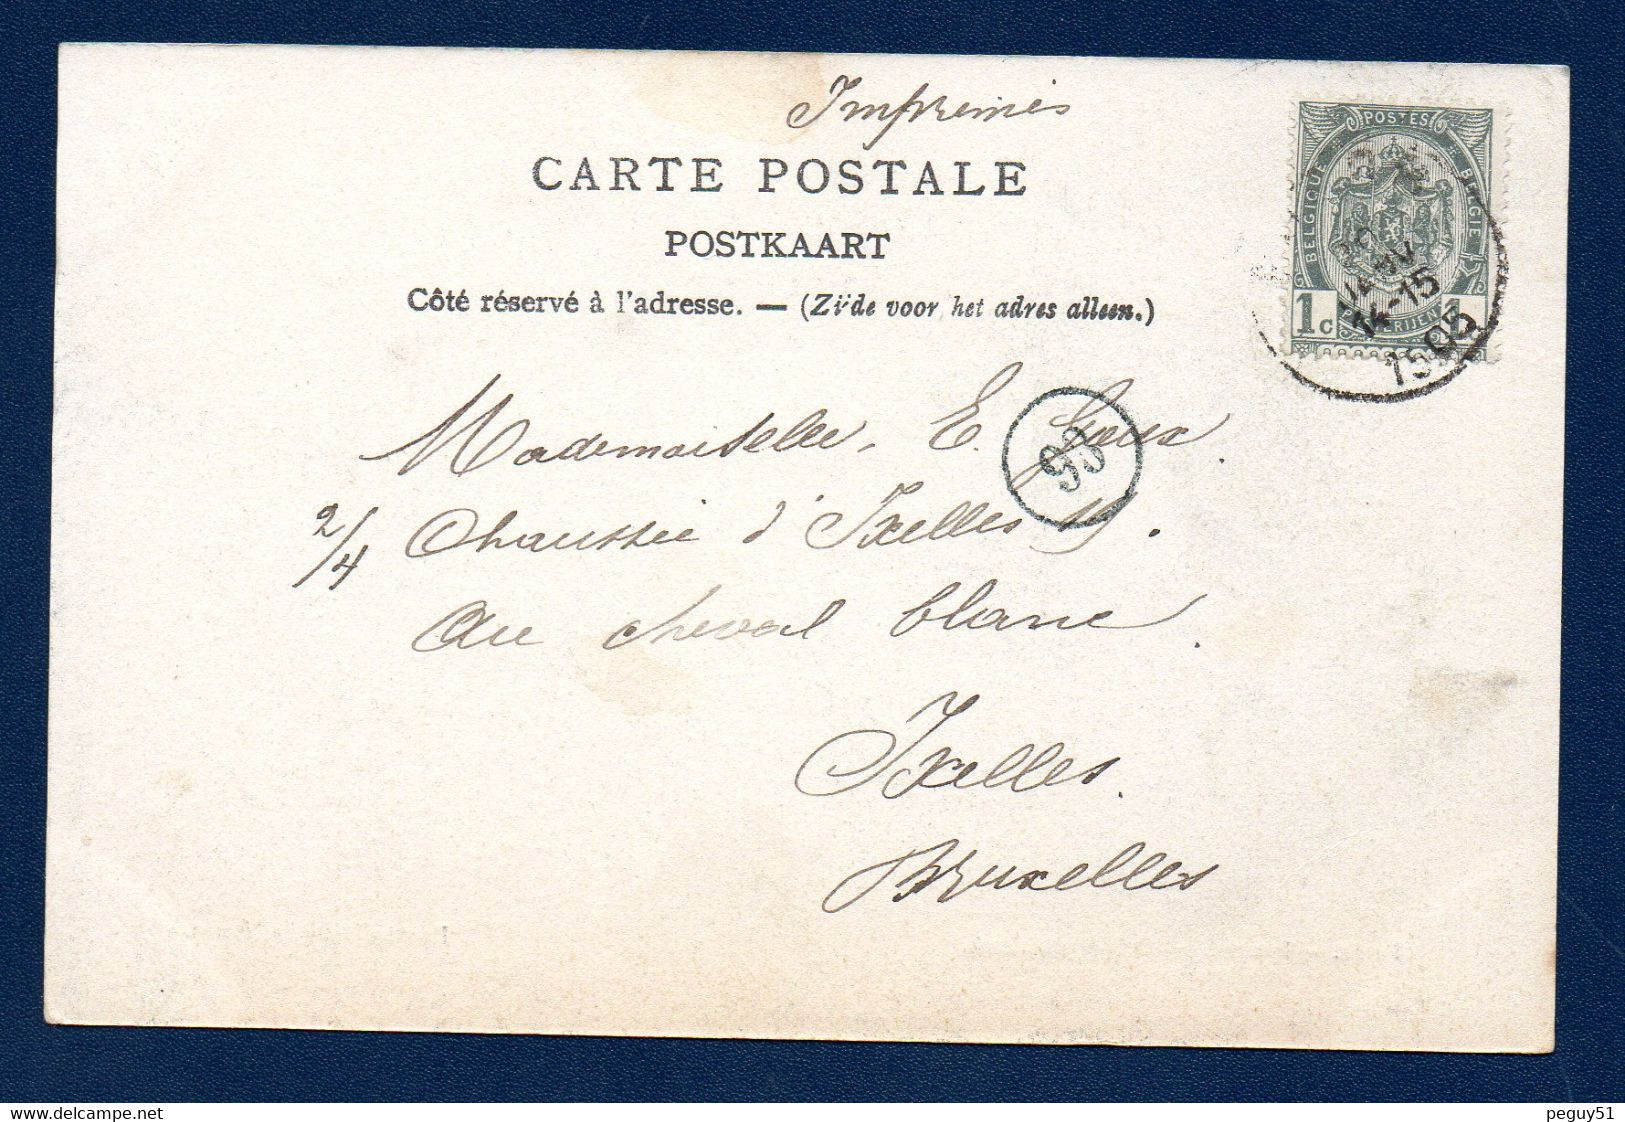 Imprimés
CARTE POSTALE
POSTKAART
Côté réservé à l'adresse. — (Zijde voor het adres alleen.)
POSTES
BELGIQUE
BELGIE
1c
1
JANV
14-15
1905
93
Mademoiselle E. Goux.
2/4
Chaussée d'Ixelles 19.
Au cheval blanc.
Ixelles.
Bruxelles
www.delcampe.net
peguy51